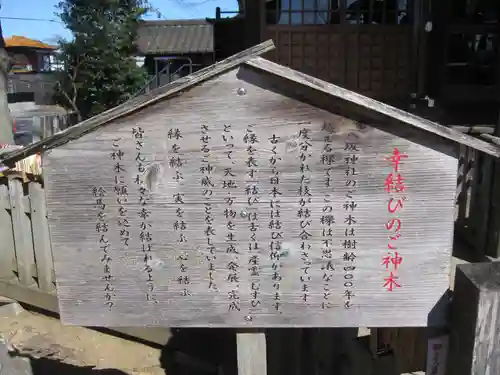 幸結びのご神木
八坂神社のご神木は樹齢四〇〇年を
越える欅です。この欅は不思議なことに
一度分かれた枝が結び合わさっています。
古くから日本には結び信仰があり
ご縁を表す「結び」は古くは産霊(むすび)
といって、天地万物を生成、発展、完成
させるご神威のことを表していました。
縁を結ぶ、実を結ぶ、心を結ぶ
皆さんもお好きな幸が結ばれるように、
ご神木に願いを込めて
絵馬を結んでみませんか?